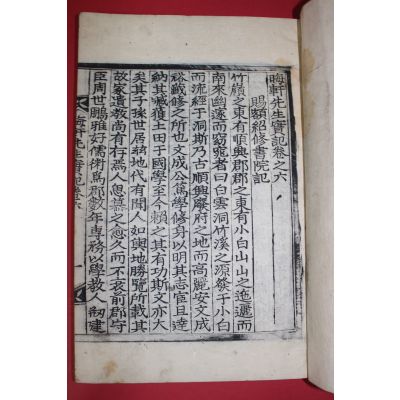 晦軒先生實記卷之六
賜額紹修書院記
竹嶺之東有順興郡郡之東有小白山山之迤邐而
南來幽邃而窈窕者曰白雲洞竹溪之源發于小白
而流經于洞斯乃古順興廢府之地而高麗安文成
裕藏修之所也文成公篤學修身以明其吉宦且達
納其臧獲土田于國學至今賴之其有功斯文亦大
矣其子孫世居兹地代有聞人如輿地勝覽所載其
故家遺教尚有存焉人思慕之愈久而不衰前郡守
臣周世鵬雅好儒術爲郡數年專務以學教人刱建
晦軒先生實記卷六
一